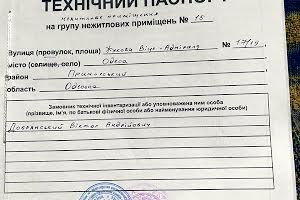 ТЕХНІЧНИЙ ПАСПОРТ
нежитлове приміщення
на групу нежитлових приміщень № 15
Вулиця (провулок, площа) Жукова Віце-Адмірала, 17/19
місто (селище, село) Одеса
район Приморський
область Одеська
Замовник технічної інвентаризації або уповноважена ним особа
(прізвище, ім'я, по батькові фізичної особи або найменування юридичної особи)
Довлянський Віктор Андрійович